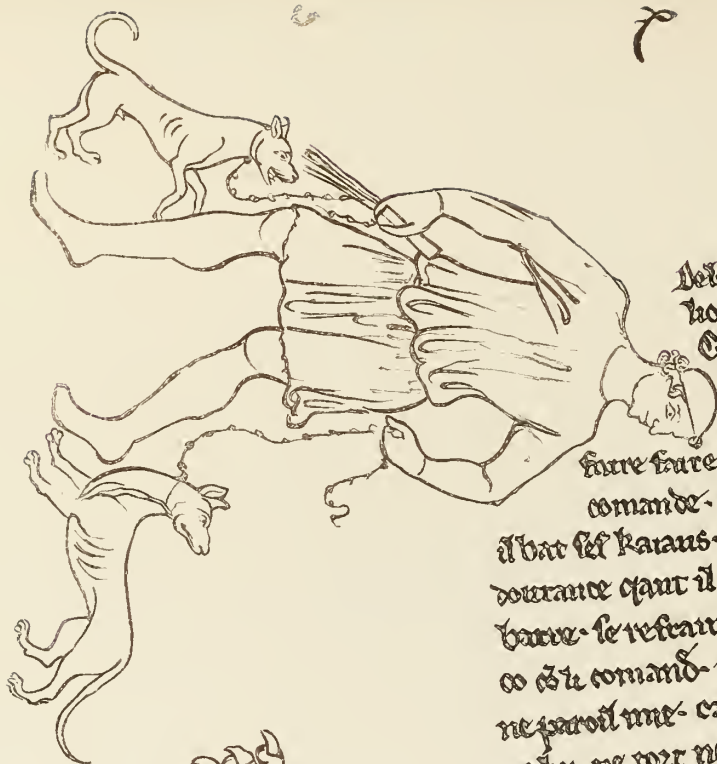 Del
lio
C
faire faire
comande·
il bat ses kaiaus·
doutance qant il
batre· se refrain
co cō li comand·
ne paroil mie· ca
ne tort ne